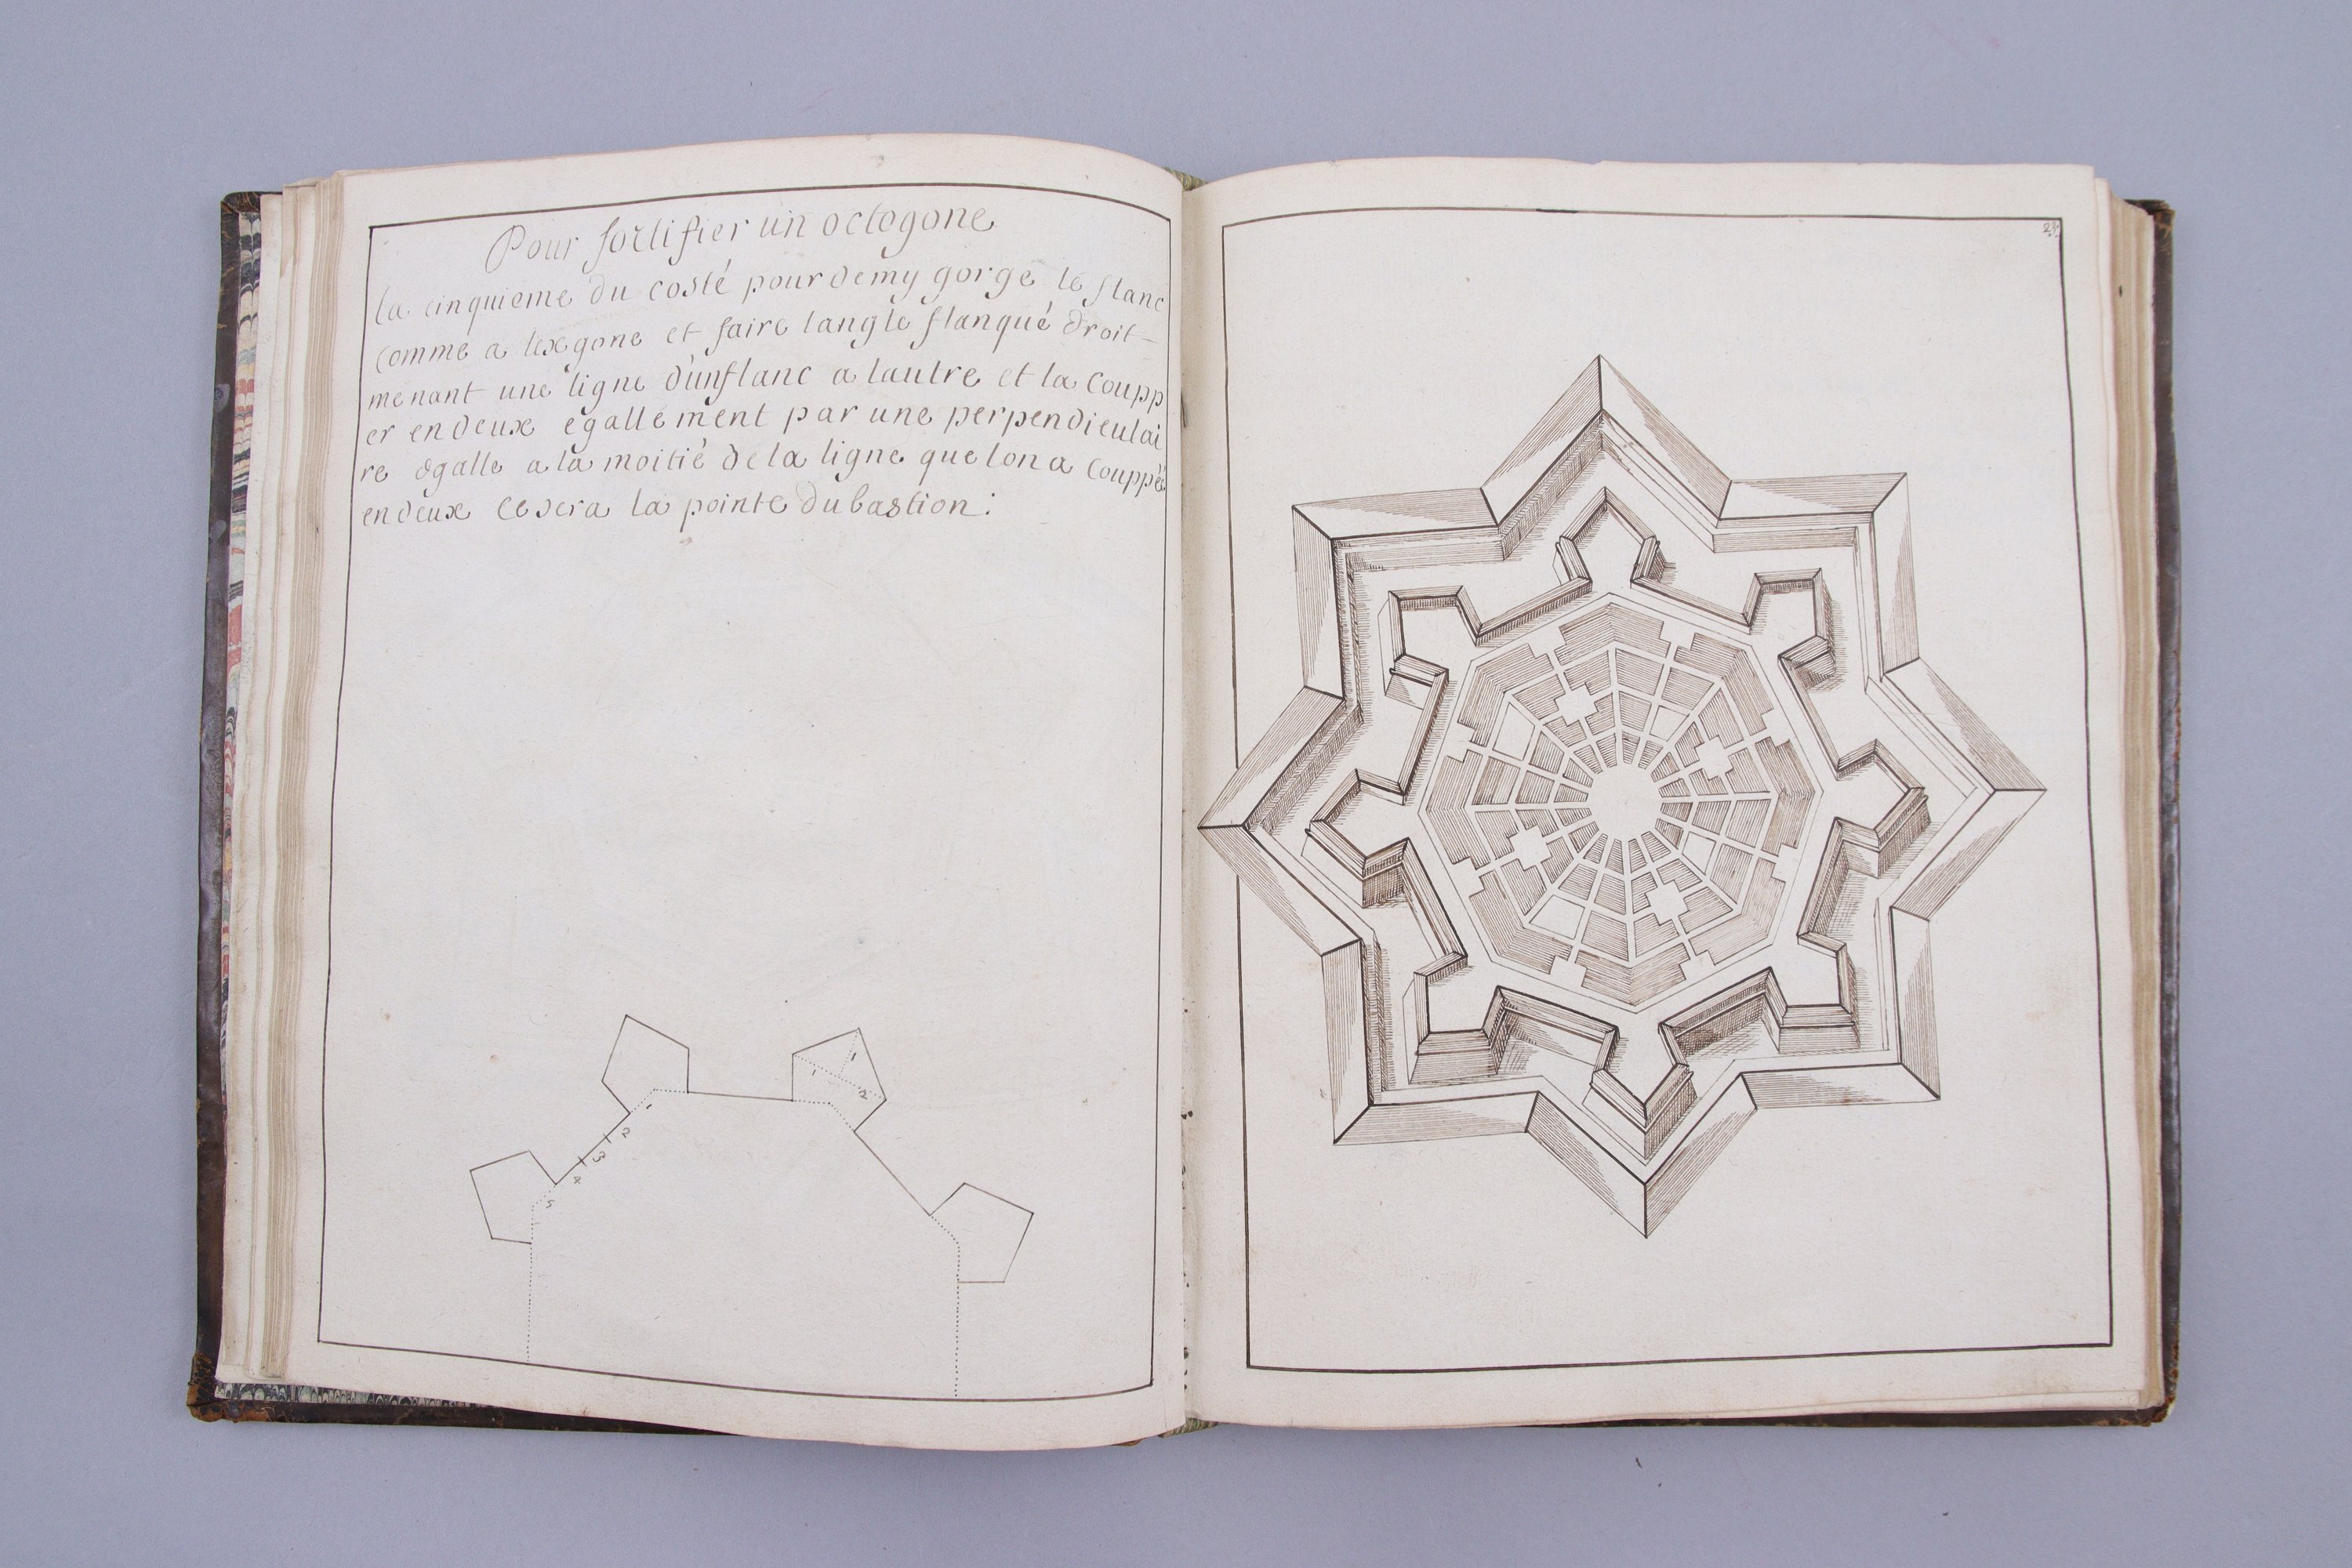 Pour fortifier un octogone
la cinquieme du costé pour demy gorge le flanc
comme a lexgone et faire langle flanqué droit-
menant une ligne dunflanc a lautre et la coupp
er en deux egallement par une perpendiculai
re egalle a la moitié dela ligne que lon a couppée
en deux ce sera la pointe du bastion:
1
1
2
1
2
3
4
5